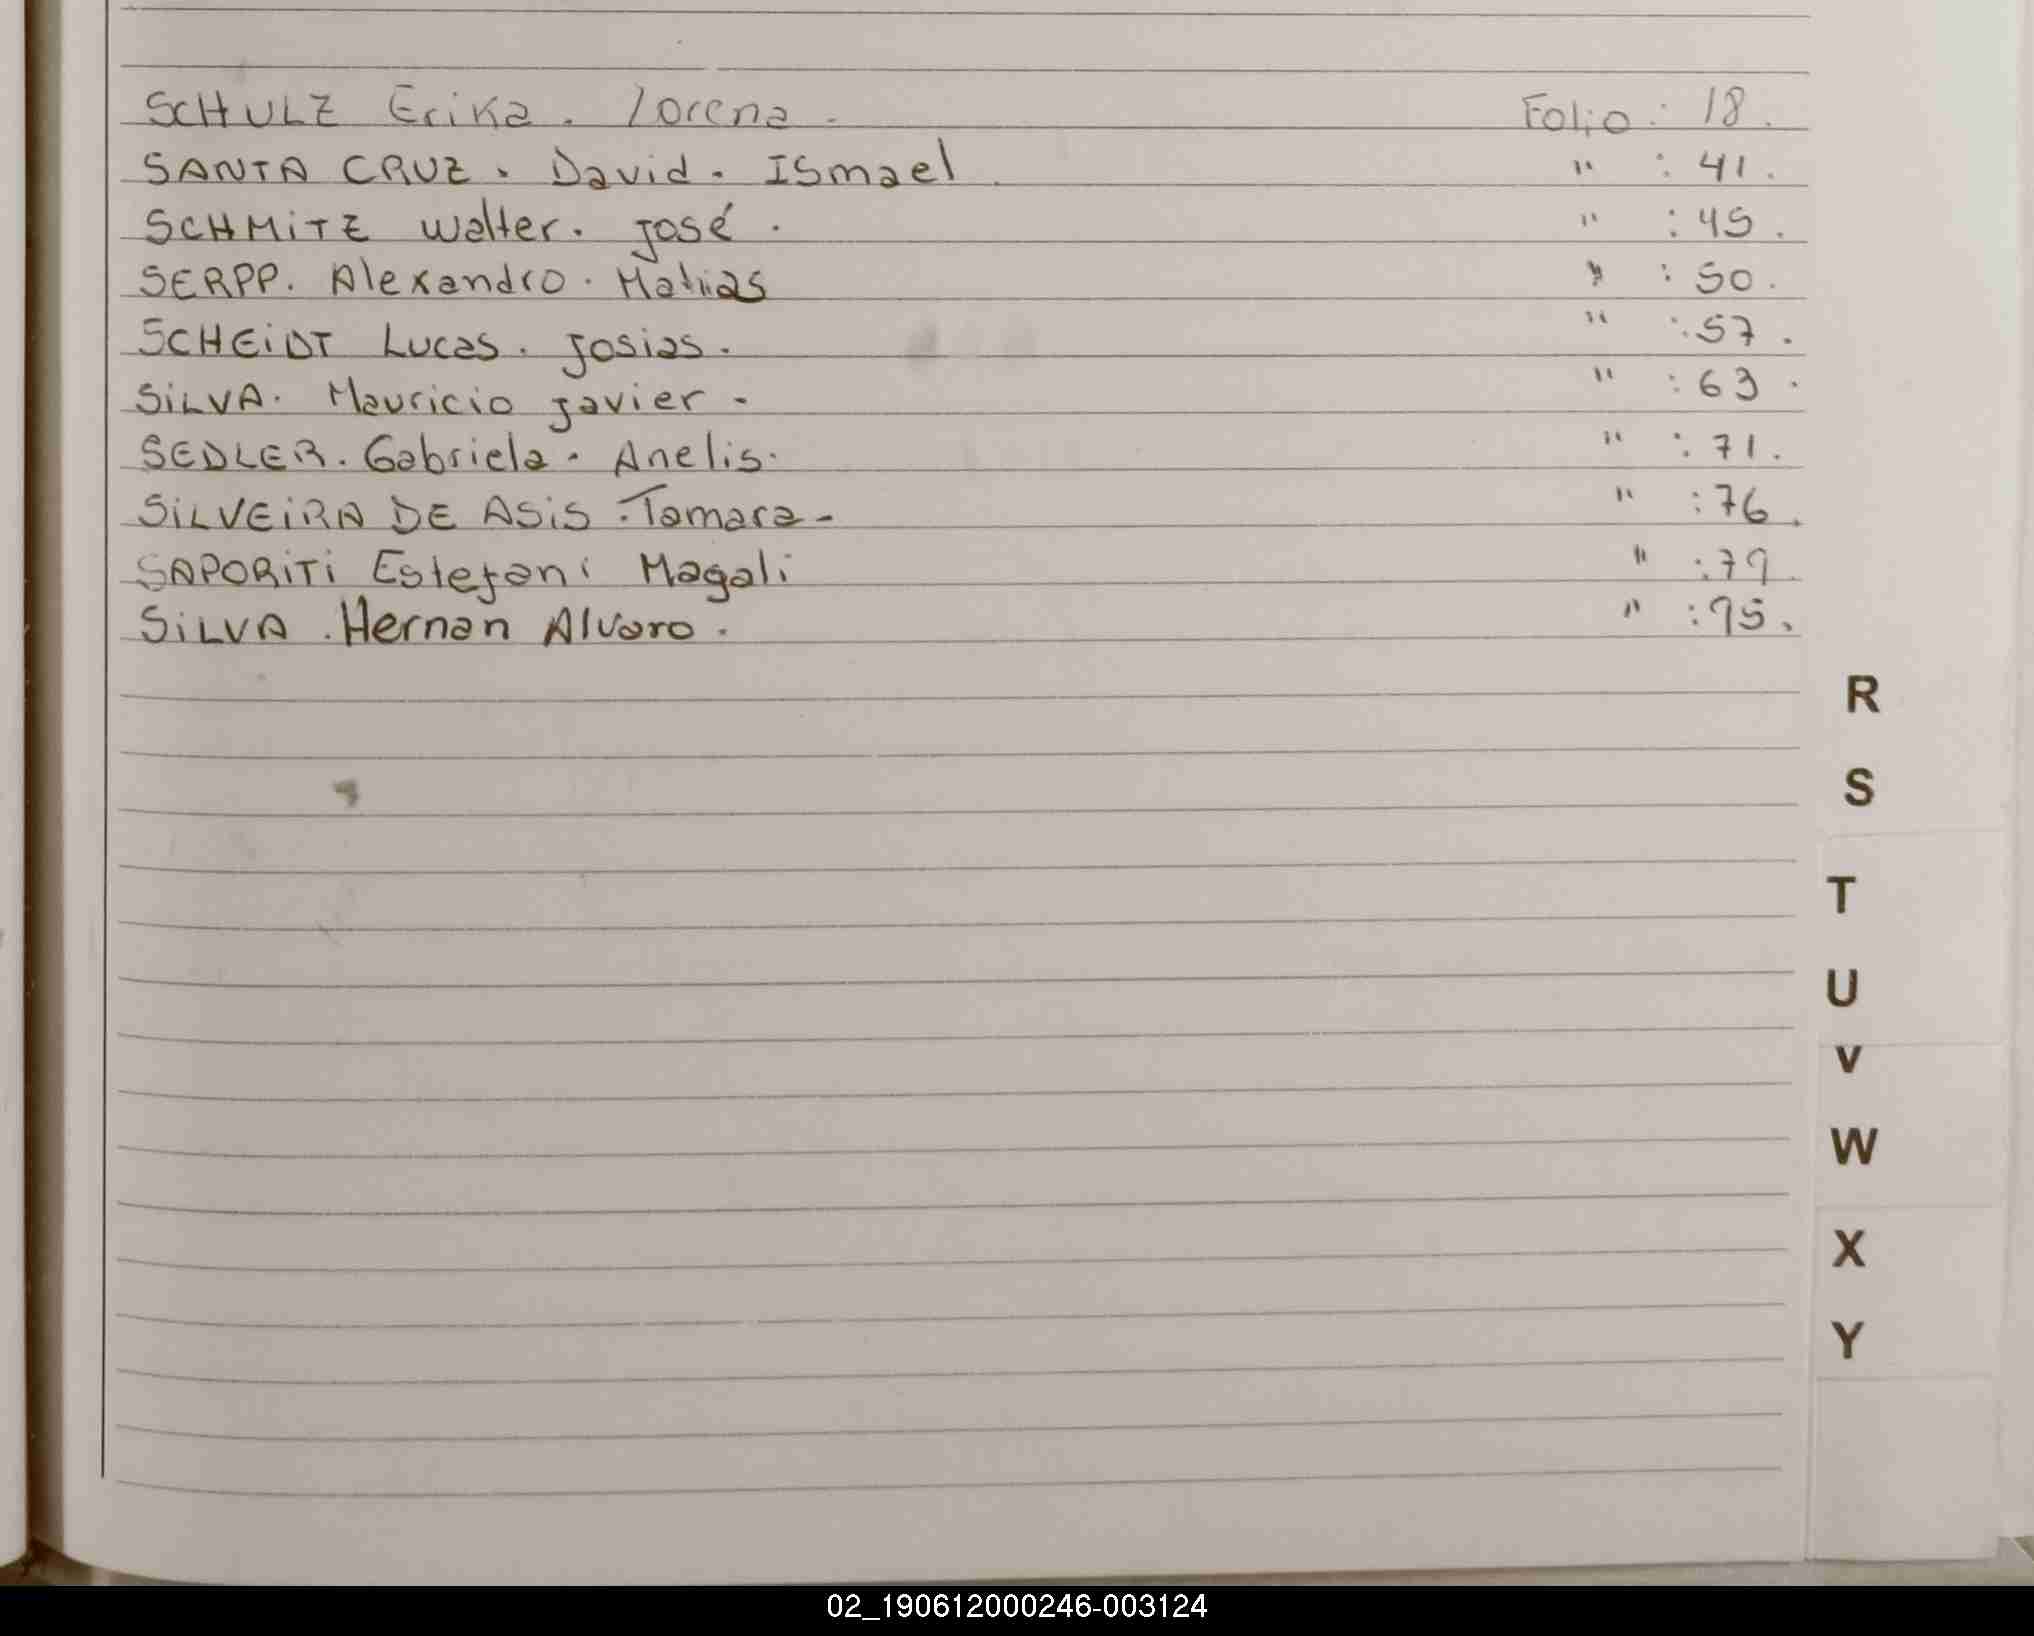 SCHULZ Erika. Lorena. Folio: 18.
SANTA CRUZ. David. ISmael. " : 41.
SCHMiTZ Walter. José. " : 45.
SERPP. Alexandro. Matias " : 50.
SCHEiDT Lucas. Josias. " : 57.
SiLVA. Mauricio Javier. " : 63.
SEDLER. Gabriela. Anelis. " : 71.
SiLVEiRA DE ASiS. Tamara- " : 76.
SAPORiTi Estefani Magali " : 79.
SiLVA. Hernan Alvaro. " : 95.
R
S
T
U
V
W
X
Y
02_190612000246-003124